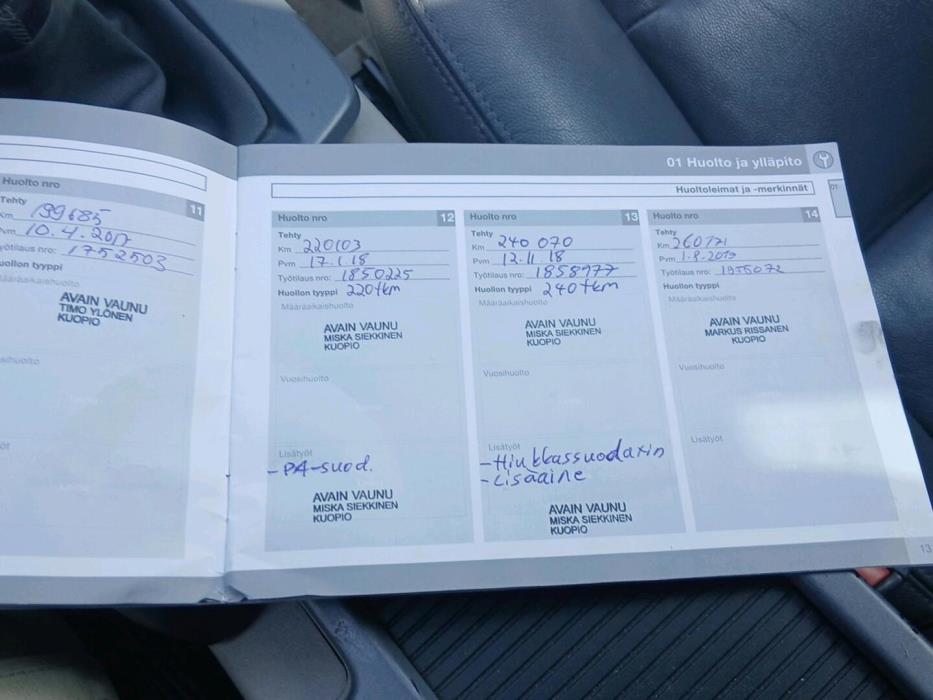 Huolto nro 11
Tehty
Km 199685
Pvm 10.4.2017
Työtilaus nro: 1752503
Huollon tyyppi
Määräaikaishuolto
AVAIN VAUNU
TIMO YLÖNEN
KUOPIO
01 Huolto ja ylläpito
01
Huoltoleimat ja -merkinnät
Huolto nro 12
Tehty
Km 220103
Pvm 17.1.18
Työtilaus nro: 1850225
Huollon tyyppi 220tkm
Määräaikaishuolto
AVAIN VAUNU
MISKA SIEKKINEN
KUOPIO
Vuosihuolto
Lisätyöt
-PA-suod.
AVAIN VAUNU
MISKA SIEKKINEN
KUOPIO
Huolto nro 13
Tehty
Km 240 070
Pvm 12.11.18
Työtilaus nro: 1858977
Huollon tyyppi 240tkm
Määräaikaishuolto
AVAIN VAUNU
MISKA SIEKKINEN
KUOPIO
Vuosihuolto
Lisätyöt
-Hiukkassuodatin
-Lisäaine
AVAIN VAUNU
MISKA SIEKKINEN
KUOPIO
Huolto nro 14
Tehty
Km
Pvm 1.8.2019
Työtilaus nro:
Huollon tyyppi
Määräaikaishuolto
AVAIN VAUNU
MARKUS RISSANEN
KUOPIO
Vuosihuolto
Lisätyöt
13